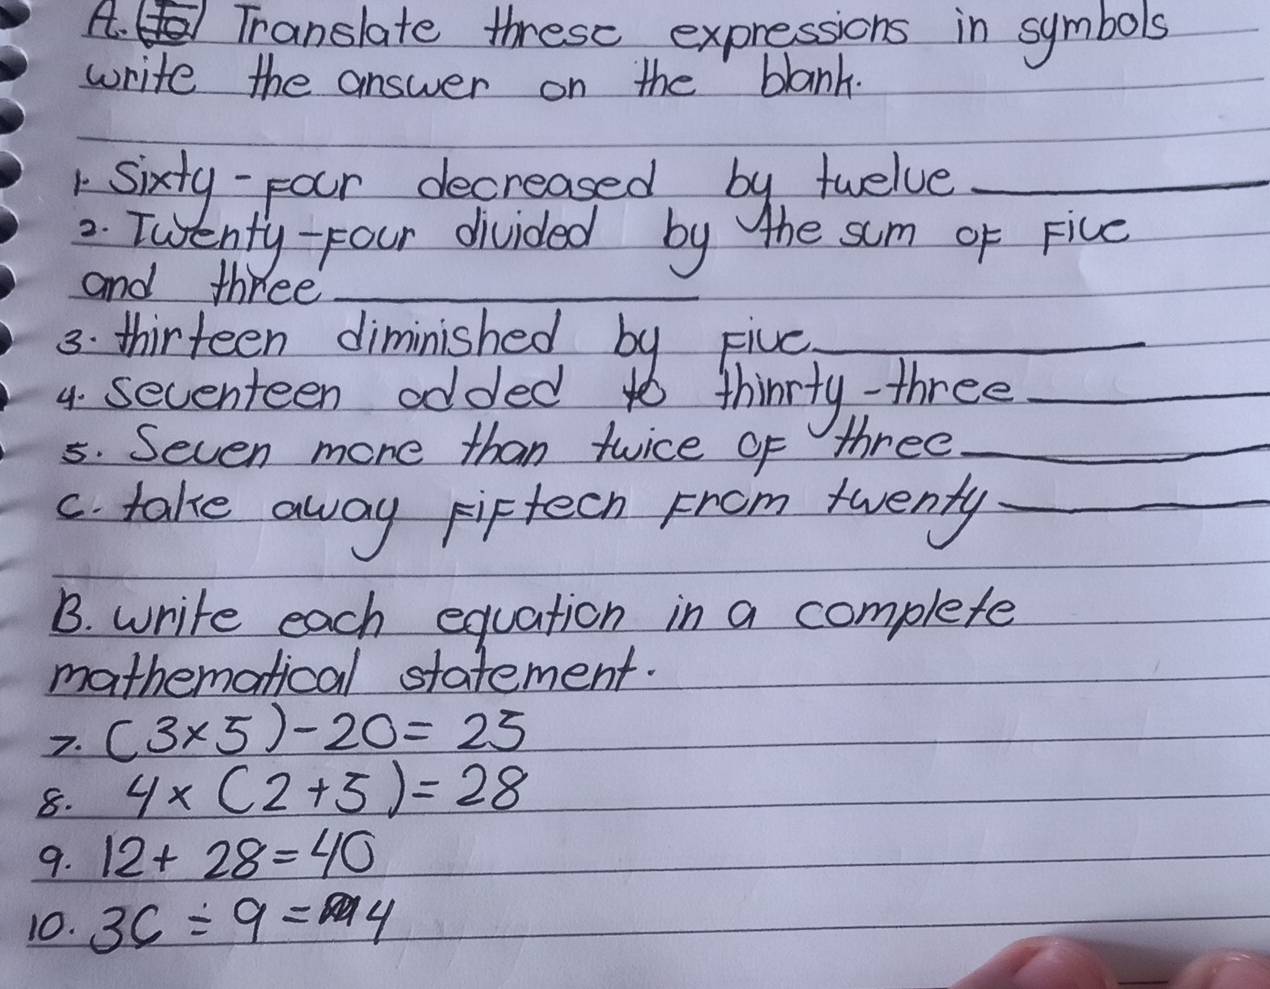 A. (to) Translate threse expressions in symbols
write the answer on the blank.
1. Sixty-four decreased by twelve
2. Twenty-four divided by the sum of Five
and three
3. thirteen diminished by Five
4. Seventeen added to thinrty-three
5. Seven more than twice of three
6. take away Fifteen From twenty
B. write each equation in a complete
mathematical statement.
7. (3×5)-20= 25
8. 4×(2+5)=28
9. 12+ 28=40
10. 36÷9=4